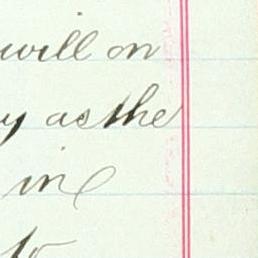 will on
y as the
in
to